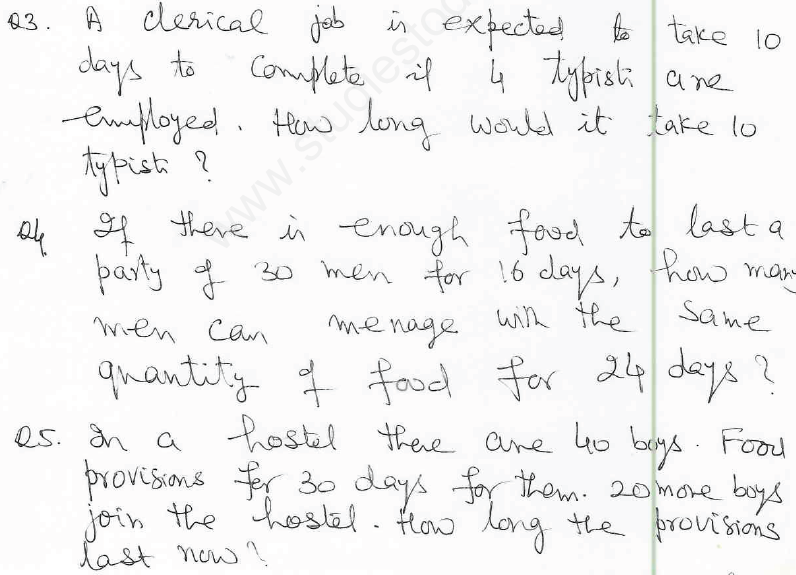 Q3. A clerical job is expected to take 10
days to complete if 4 typists are
employed. How long would it take 10
typists?
Q4 If there is enough food to last a
party of 30 men for 16 days, how many
men can menage with the same
quantity of food for 24 days?
Q5. In a hostel there are 40 boys. Food
provisions for 30 days for them. 20 more boys
join the hostel. How long the provisions
last now?